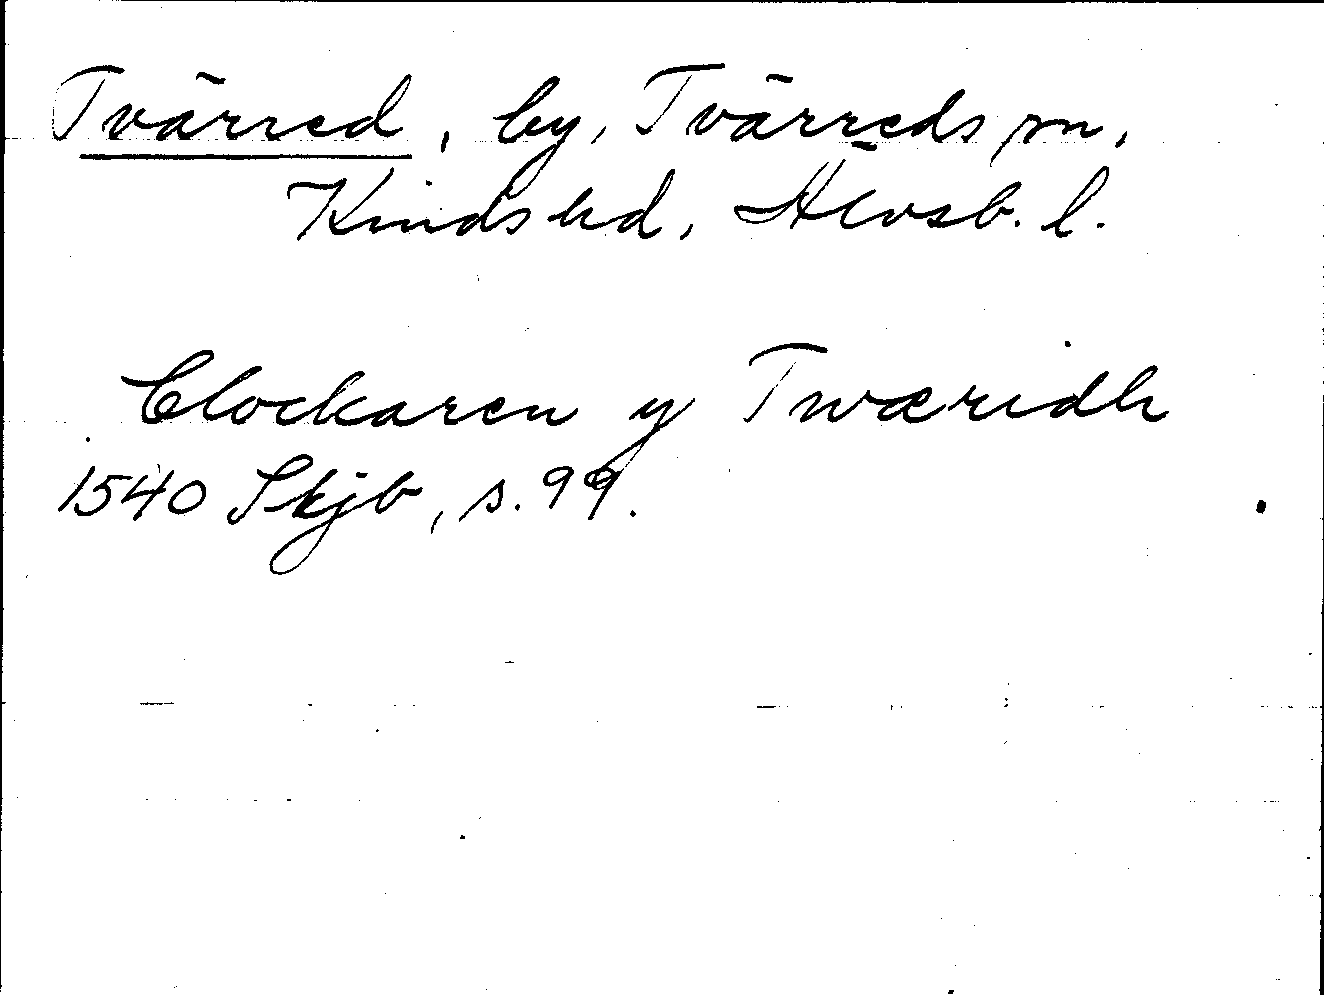 Tvärred, by, Tvärreds sn,
Kinds hd, Älvsb. l.
Clockaren y Twæridh
1540 Skjb, s. 99.